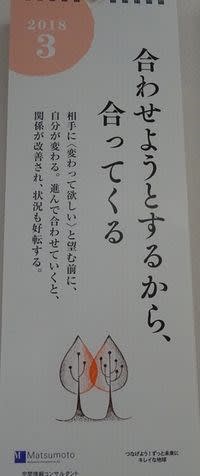 2018
3
合わせようとするから、
合ってくる
相手に〈変わって欲しい〉と望む前に、
自分が変わる。進んで合わせていくと、
関係が改善され、状況も好転する。
M Matsumoto
空間情報コンサルタント
つなげよう！ずっと未来に
キレイな地球